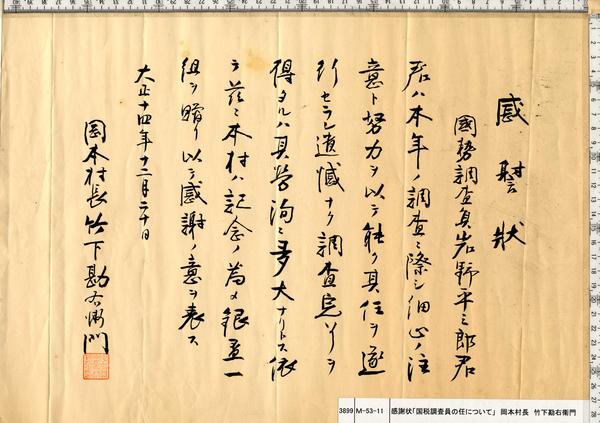 感謝状
國勢調査員岩野平三郎君
君ハ本年ノ調査ニ際シ細心ノ注
意ト努力ヲ以テ能ク其任ヲ遂
行セラレ遺憾ナク調査完了ヲ
得タルハ其労洵ニ多大ナリトス依
テ茲ニ本村ハ記念ノ為メ銀盃一
組ヲ贈リ以テ感謝ノ意ヲ表ス
大正十四年十二月二十日
岡本村長竹下勘右衛門
3899 M-53-11 感謝状「国税調査員の任について」 岡本村長 竹下勘右衛門